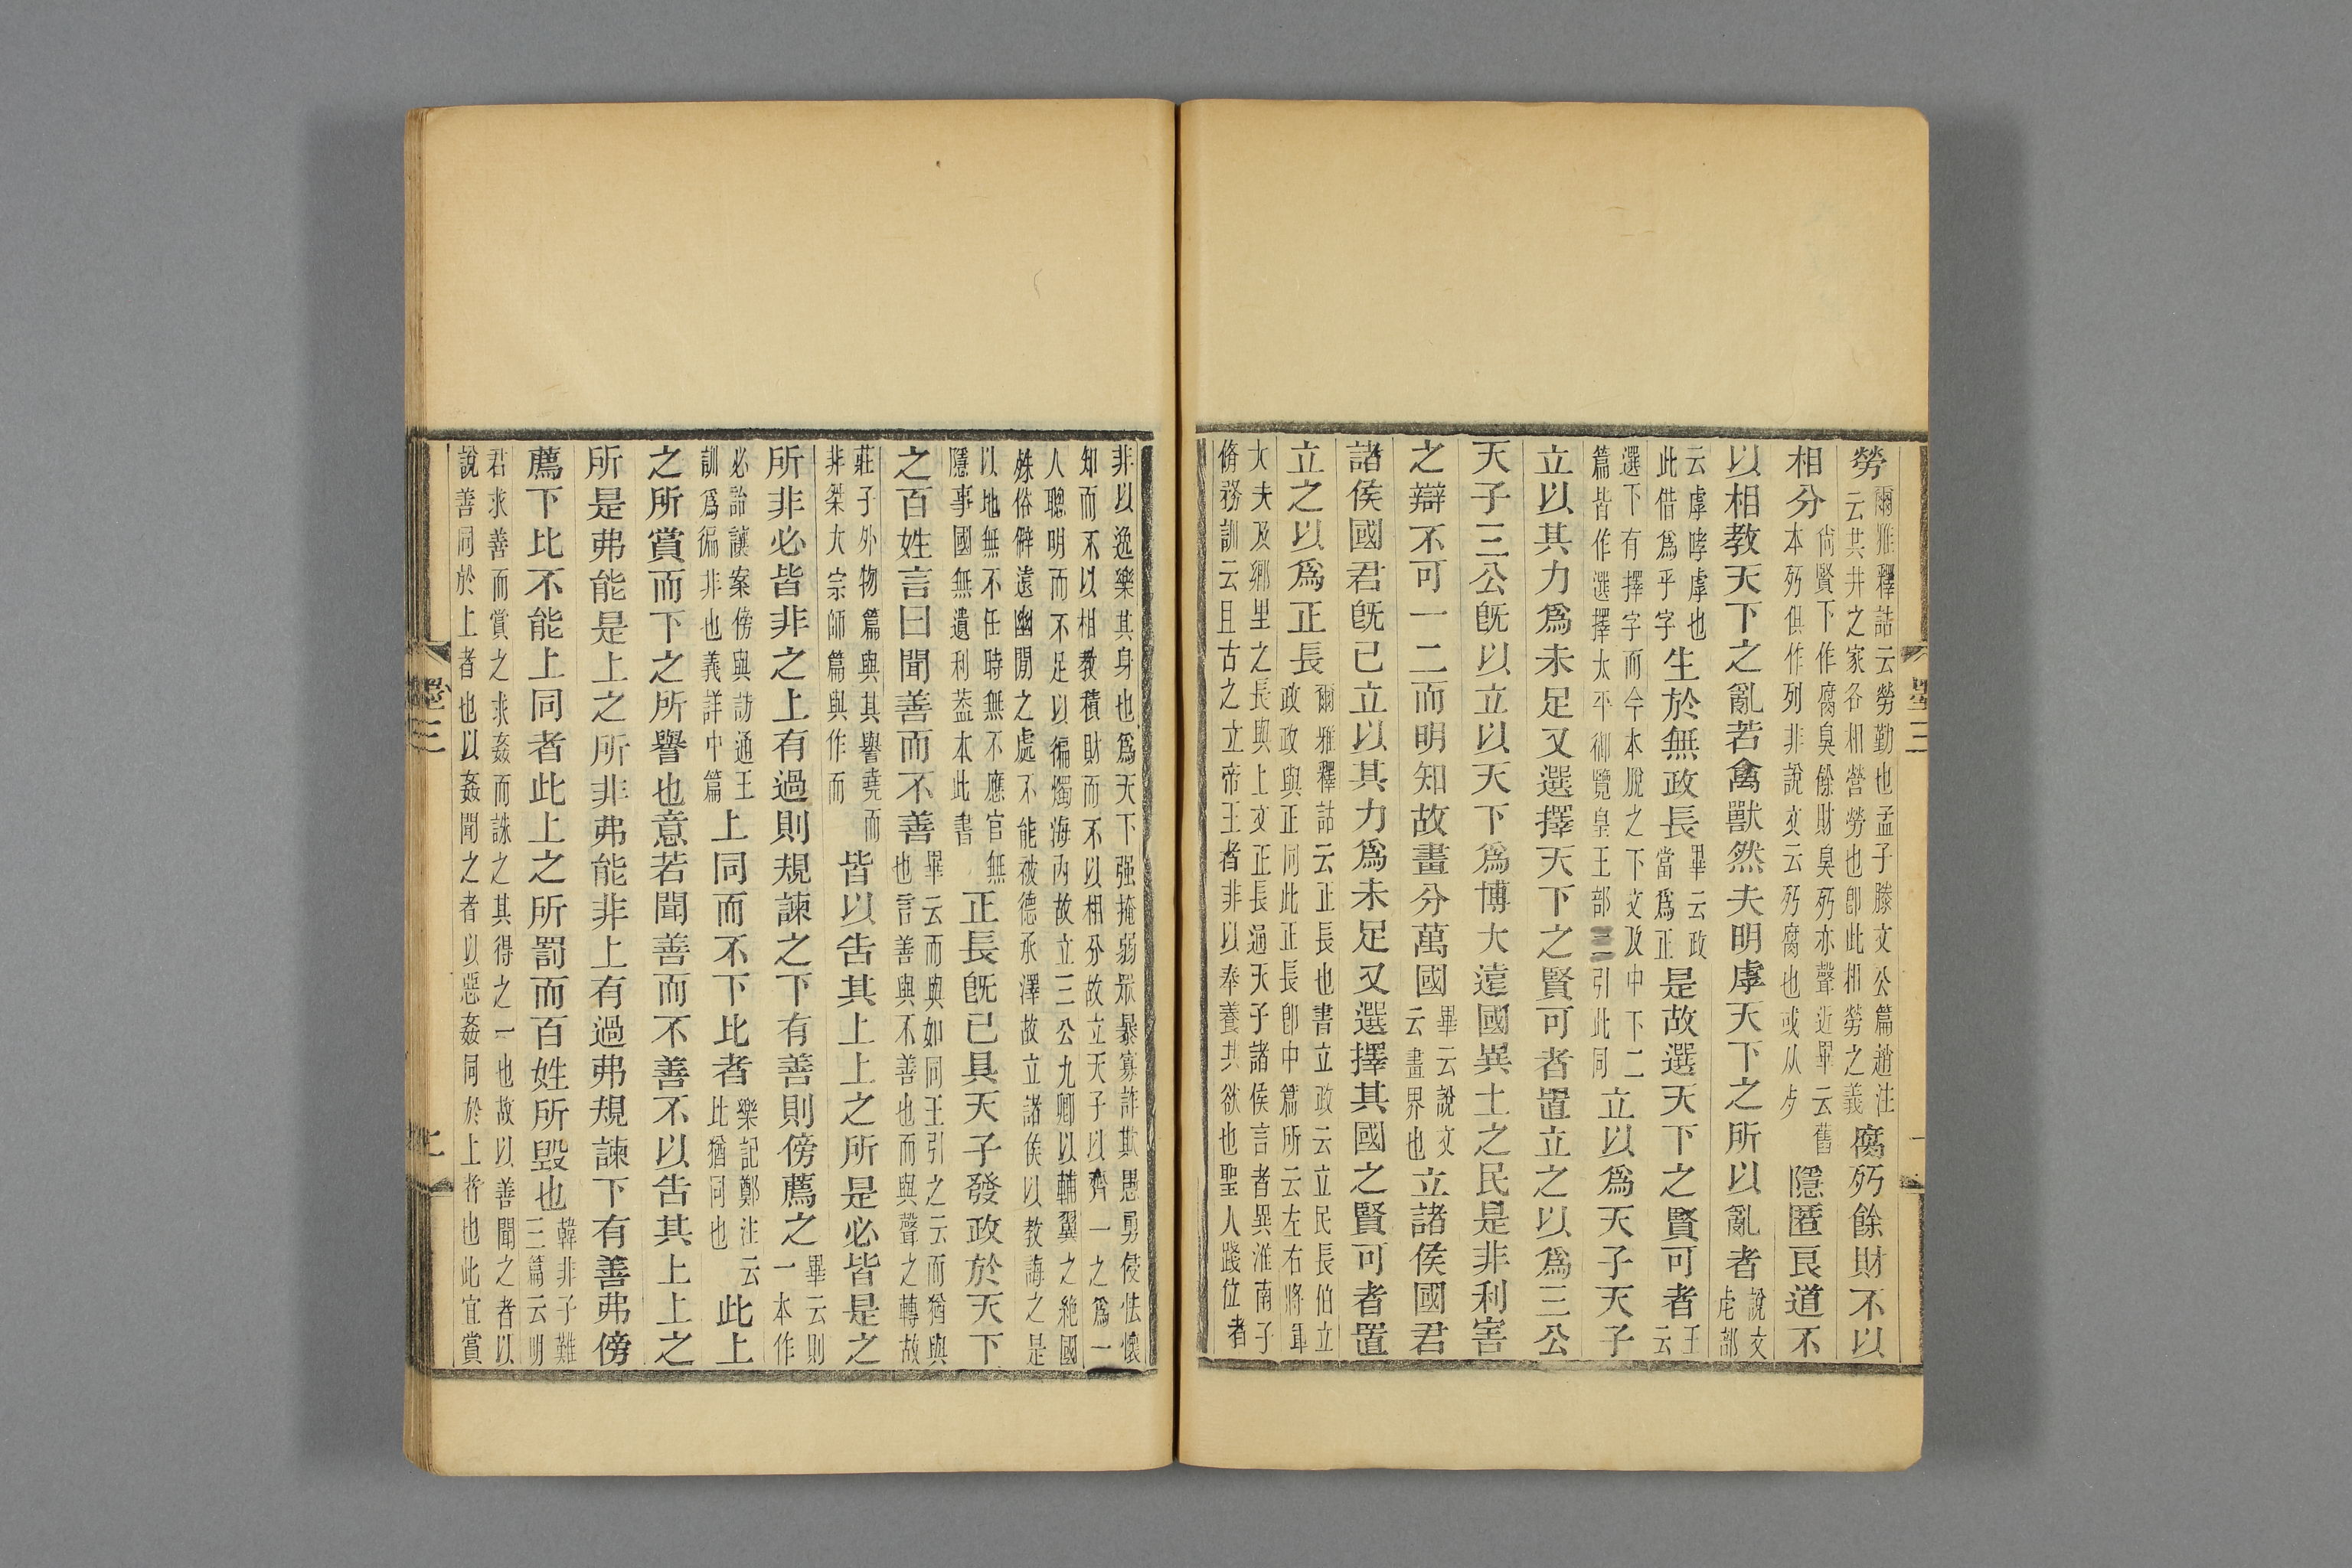 勞爾雅釋詁云勞勤也孟子滕文公篇趙注云共井之家各相營勞也卽此相勞之義腐㱙餘財不以
相分尙賢下作腐臭餘財臭㱙亦聲近畢云舊本㱙俱作列非說文云㱙腐也或从歺隱匿良道不
以相教天下之亂若禽獸然夫明虖天下之所以亂者說文虍部
云虖哮虖也此借爲乎字生於無政長畢云政當爲正是故選天下之賢可者王云
選下有擇字而今本脫之下文及中下二篇皆作選擇太平御覽皇王部二引此同立以爲天子天子
立以其力爲未足又選擇天下之賢可者置立之以爲三公
天子三公旣以立以天下爲博大遠國異土之民是非利害
之辯不可一二而明知故畫分萬國畢云說文云畫界也立諸侯國君
諸侯國君旣已立以其力爲未足又選擇其國之賢可者置
立之以爲正長爾雅釋詁云正長也書立政云立民長伯立政政與正同此正長卽中篇所云左右將軍
大夫及鄉里之長與上文正長通天子諸侯言者異淮南子
脩務訓云且古之立帝王者非以奉養其欲也聖人踐位者
墨三
非以逸樂其身也爲天下强掩弱眾暴寡詐欺愚勇侵怯懷
知而不以相教積財而不以相分故立天子以齊一之爲一
人聰明而不足以徧燭海內故立三公九卿以輔翼之絶國
殊俗僻遠幽閒之處不能被德承澤故立諸侯以教誨之是
以地無不任時無不應官無隱事國無遺利葢本此書正長旣已具天子發政於天下
之百姓言曰聞善而不善畢云而與如同王引之云而猶與也言善與不善也而與聲之轉故
莊子外物篇與其譽堯而非桀大宗師篇與作而皆以吿其上上之所是必皆是之
所非必皆非之上有過則規諫之下有善則傍薦之畢云則一本作
必詒讓案傍與訪通王訓爲徧非也義詳中篇上同而不下比者樂記鄭注云比猶同也此上
之所賞而下之所譽也意若聞善而不善不以吿其上上之
所是弗能是上之所非弗能非上有過弗規諫下有善弗傍
薦下比不能上同者此上之所罰而百姓所毀也韓非子難三篇云明
君求善而賞之求姦而誅之其得之一也故以善聞之者以
說善同於上者也以姦聞之者以惡姦同於上者也此宜賞
墨三